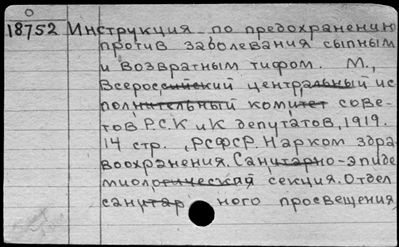 О
18752 Инструкция по предохранению
против заболевания сыпным
и возвратным тифом. М.,
Всероссийский центральный ис
полнительный комитет сове-
тов Р.С.К и К депутатов, 1919.
14 стр. , РСФСР. Нарком здра
воохранения. Санитарно-эпиде
миологическая секция. Отдел
санитар ного просвещения